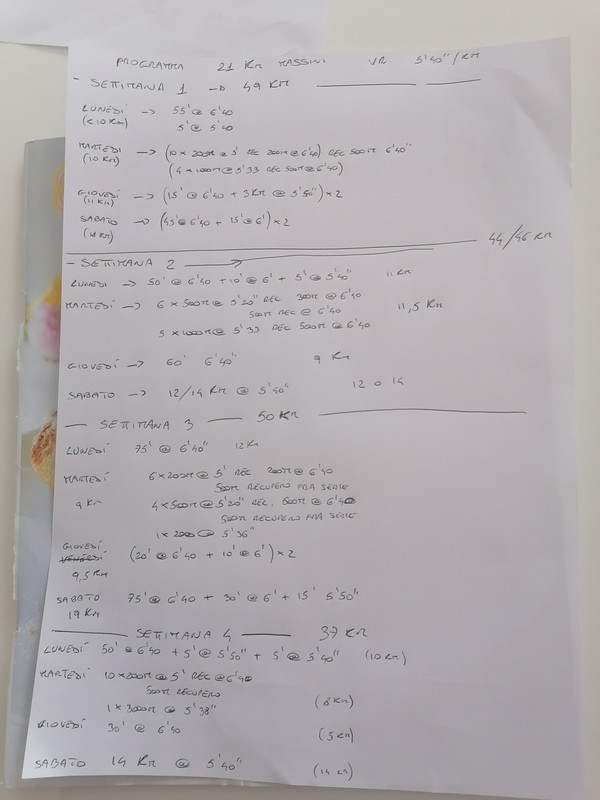 PROGRAMMA 21 KM MASSINI VR 5'40"/KM
- SETTIMANA 1 -> 49 KM
LUNEDÌ -> 55' @ 6'40
(<10 KM) 5' @ 5'40
MARTEDÌ -> (10 x 200M @ 5' REC 200M @ 6'40) REC 500M 6'40"
(10 KM) (4 x 1000M @ 5'33 REC 500M @ 6'40)
GIOVEDÌ -> (15' @ 6'40 + 3KM @ 5'50") x 2
(11 KM)
SABATO -> (45' @ 6'40 + 15' @ 6') x 2
(18 KM)
44/46 KM
- SETTIMANA 2
LUNEDÌ -> 50' @ 6'40 + 10' @ 6' + 5' @ 5'40" 11 KM
MARTEDÍ -> 6 x 500M @ 5'20" REC 300M @ 6'40
500M REC @ 6'40 11,5 KM
5 x 1000M @ 5'33 REC 500M @ 6'40
GIOVEDÌ -> 60' 6'40" 9 KM
SABATO -> 12/14 KM @ 5'40" 12 o 14
- SETTIMANA 3 50 KM
LUNEDÌ 75' @ 6'40" 12 KM
MARTEDÌ 6 x 200M @ 5' REC 200M @ 6'40
500M RECUPERO FRA SERIE
9 KM 4 x 500M @ 5'20" REC. 500M @ 6'40
500M RECUPERO FRA SERIE
1 x 2000 @ 5'36"
GIOVEDÌ
VENERDÌ (20' @ 6'40 + 10' @ 6') x 2
9,5 KM
SABATO 75' @ 6'40 + 30' @ 6' + 15' 5'50"
19 KM
SETTIMANA 4 37 KM
LUNEDÌ 50' @ 6'40 + 5' @ 5'50" + 5' @ 5'40" (10 KM)
MARTEDÌ 10 x 200M @ 5' REC @ 6'40
500M RECUPERO
1 x 3000M @ 5'38" (8 KM)
GIOVEDÌ 30' @ 6'40 (5 KM)
SABATO 14 KM @ 5'40" (14 KM)